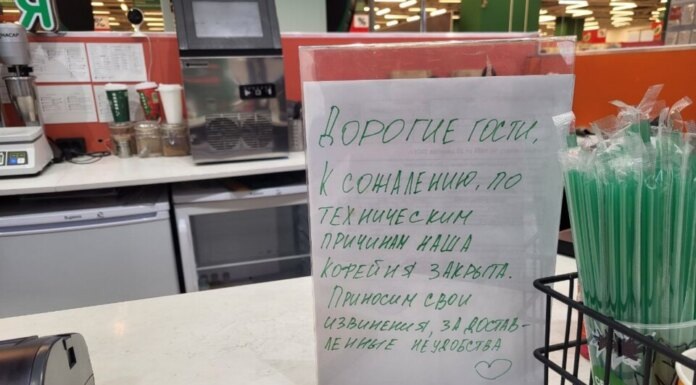 Дорогие гости,
К сожалению, по
техническим
причинам наша
кофейня закрыта.
Приносим свои
извинения, за достав-
ленные неудобства